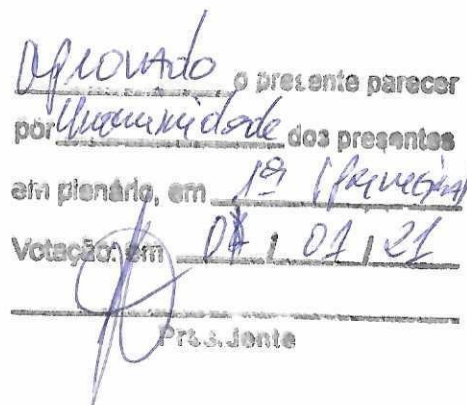 Aprovado o presente parecer
por Unanimidade dos presentes
em plenário, em 1ª (primeira)
Votação: em 07 / 01 / 21
Presidente